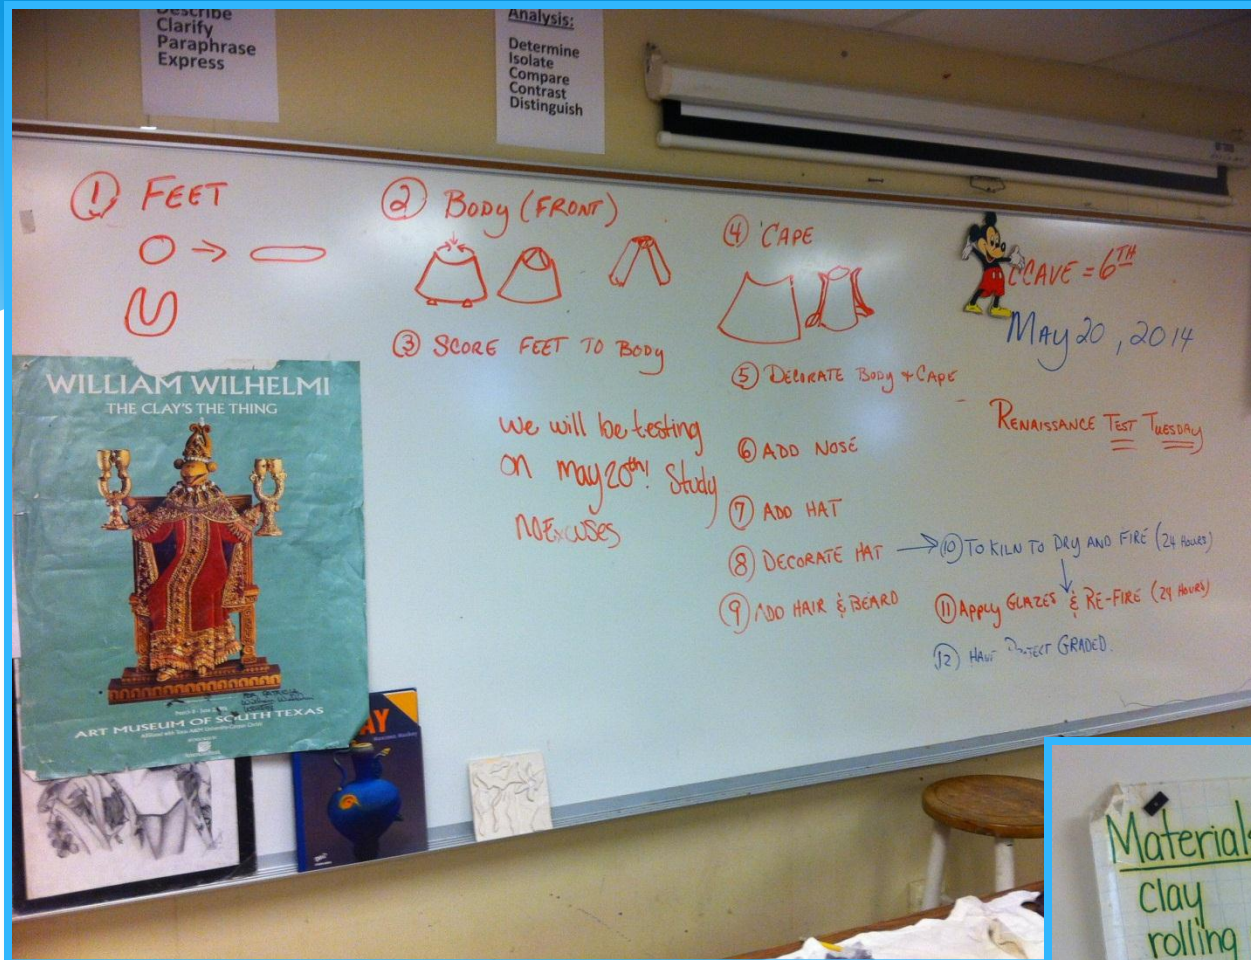 Describe
Clarify
Paraphrase
Express
Analysis:
Determine
Isolate
Compare
Contrast
Distinguish
① FEET
② BODY (FRONT)
③ SCORE FEET TO BODY
we will be testing
on May 20th! Study
NO Excuses
④ CAPE
⑤ DECORATE BODY & CAPE
⑥ ADD NOSE
⑦ ADD HAT
⑧ DECORATE HAT
⑨ ADD HAIR & BEARD
⑩ TO KILN TO DRY AND FIRE (24 HOURS)
⑪ APPLY GLAZES & RE-FIRE (24 HOURS)
⑫ HAVE PROJECT GRADED.
= 6TH
MAY 20, 2014
RENAISSANCE TEST TUESDAY
WILLIAM WILHELMI
THE CLAY'S THE THING
ART MUSEUM OF SOUTH TEXAS
AY
Materials
clay
rolling